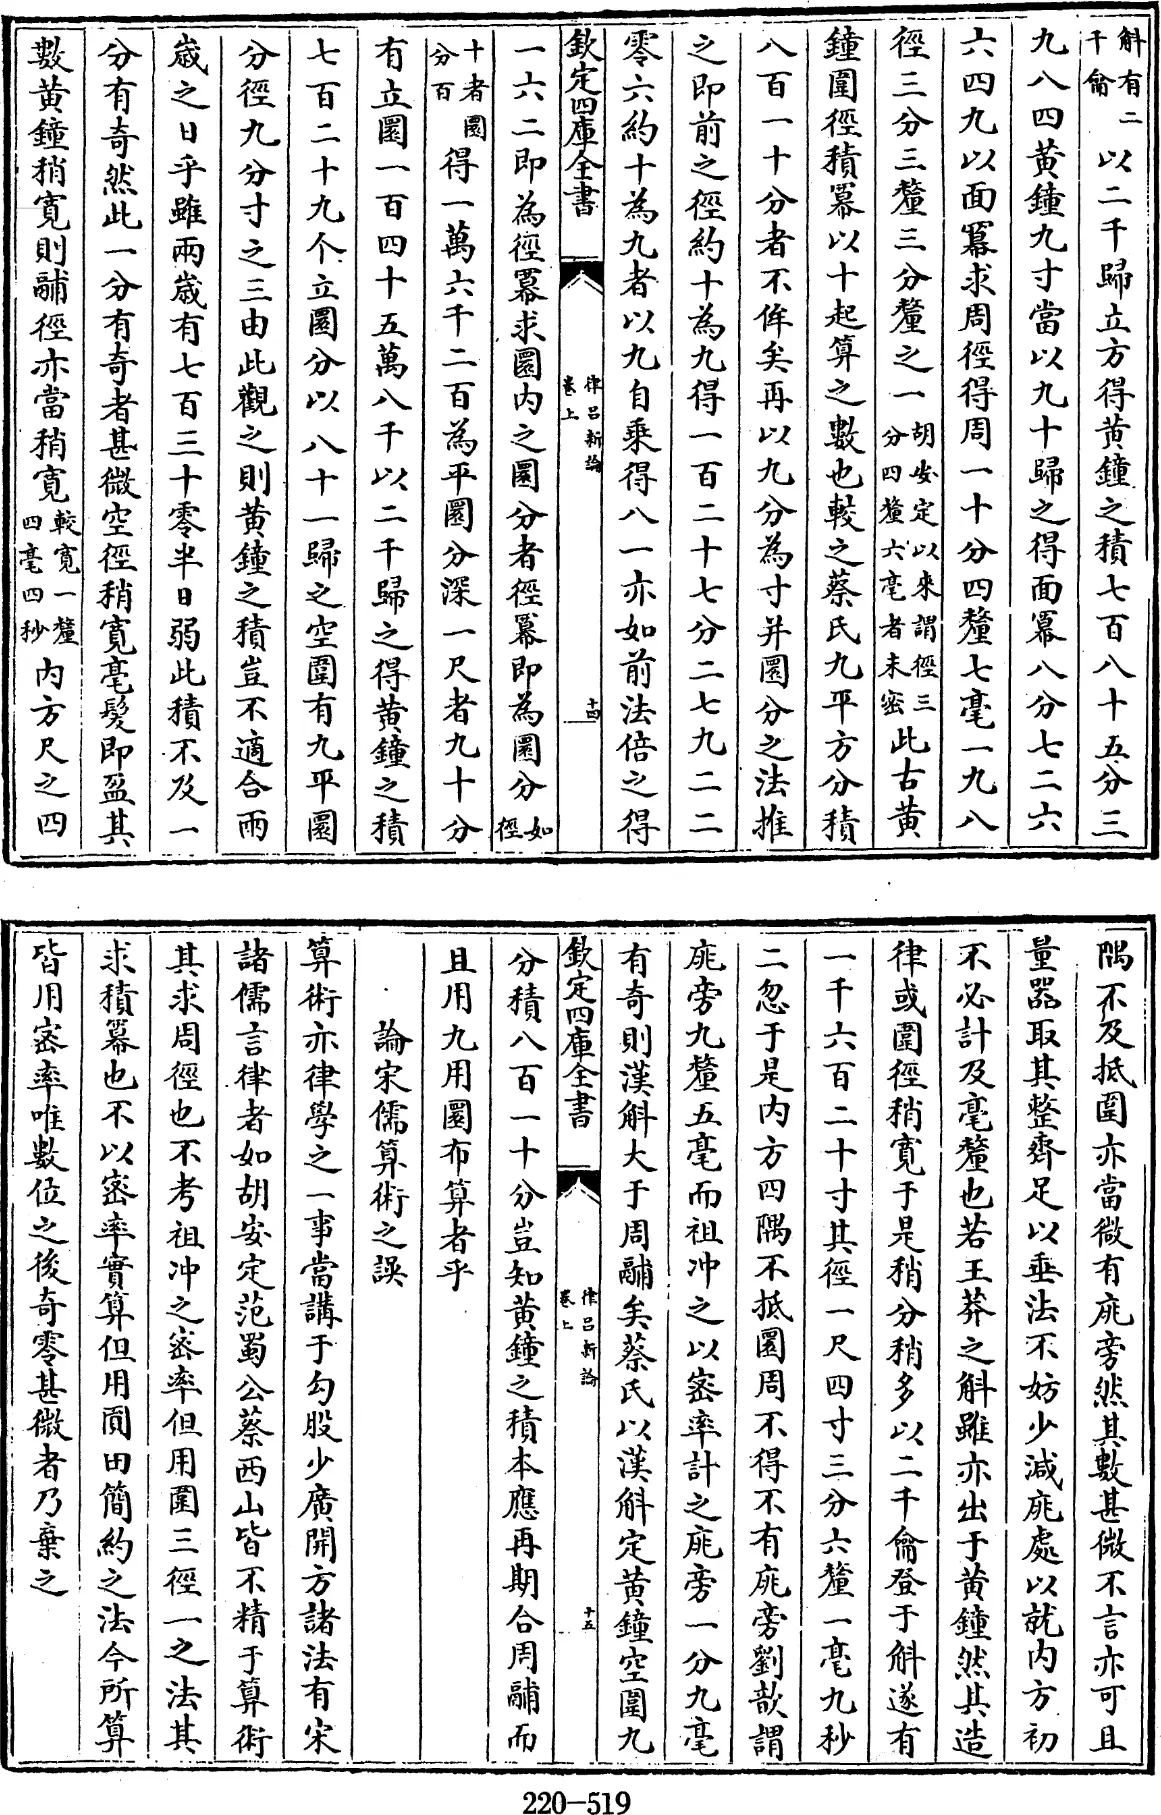 斛有二千龠以二千歸立方得黄鐘之積七百八十五分三
九八四黄鐘九寸當以九十歸之得面冪八分七二六
六四九以面冪求周徑得周一十分四釐七毫一九八
徑三分三釐三分釐之一胡安定以來謂徑三分四釐六毫者未密此古黄
鐘圍徑積冪以十起算之數也較之蔡氏九平方分積
八百一十分者不侔矣再以九分為寸并圜分之法推
之即前之徑約十為九得一百二十七分二七九二二
零六約十為九者以九自乘得八一亦如前法倍之得
欽定四庫全書
律呂新論
卷上
十四
一六二即為徑冪求圜内之圜分者徑冪即為圜分如徑
十者圜分百得一萬六千二百為平圜分深一尺者九十分
有立圜一百四十五萬八千以二千歸之得黄鐘之積
七百二十九个立圜分以八十一歸之空圍有九平圜
分徑九分寸之三由此觀之則黄鐘之積豈不適合兩
歲之日乎雖兩歲有七百三十零半日弱此積不及一
分有奇然此一分有奇者甚微空徑稍寬毫髪即盈其
數黄鐘稍寬則鬴徑亦當稍寬較寬一釐四毫四秒内方尺之四
隅不及抵圜亦當微有庣旁然其數甚微不言亦可且
量器取其整齊足以垂法不妨少減庣處以就内方初
不必計及毫釐也若王莽之斛雖亦出于黄鐘然其造
律或圍徑稍寬于是稍分稍多以二千龠登于斛遂有
一千六百二十寸其徑一尺四寸三分六釐一毫九秒
二忽于是内方四隅不抵圜周不得不有庣旁劉歆謂
庣旁九釐五毫而祖冲之以密率計之庣旁一分九毫
有奇則漢斛大于周鬴矣蔡氏以漢斛定黄鐘空圍九
欽定四庫全書
律呂新論
卷上
十五
分積八百一十分豈知黄鐘之積本應再期合周鬴而
且用九用圜布算者乎
論宋儒算術之誤
算術亦律學之一事當講于勾股少廣開方諸法有宋
諸儒言律者如胡安定范蜀公蔡西山皆不精于算術
其求周徑也不考祖冲之密率但用圍三徑一之法其
求積冪也不以密率實算但用圓田簡約之法今所算
皆用密率唯數位之後奇零甚微者乃棄之
220-519